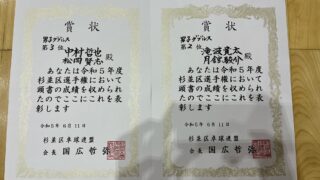 賞状
男子ダブルス
第3位
中村哲也
松岡賢志
殿
あなたは令和5年度
杉並区選手権において
頭書の成績を収められ
たのでここにこれを表
彰します
令和5年6月11日
杉並区卓球連盟
会長 国広哲弥
賞状
男子ダブルス
第2位
滝波貴太
月舘駿介
殿
あなたは令和5年度
杉並区選手権において
頭書の成績を収められ
たのでここにこれを表
彰します
令和5年6月11日
杉並区卓球連盟
会長 国広哲弥